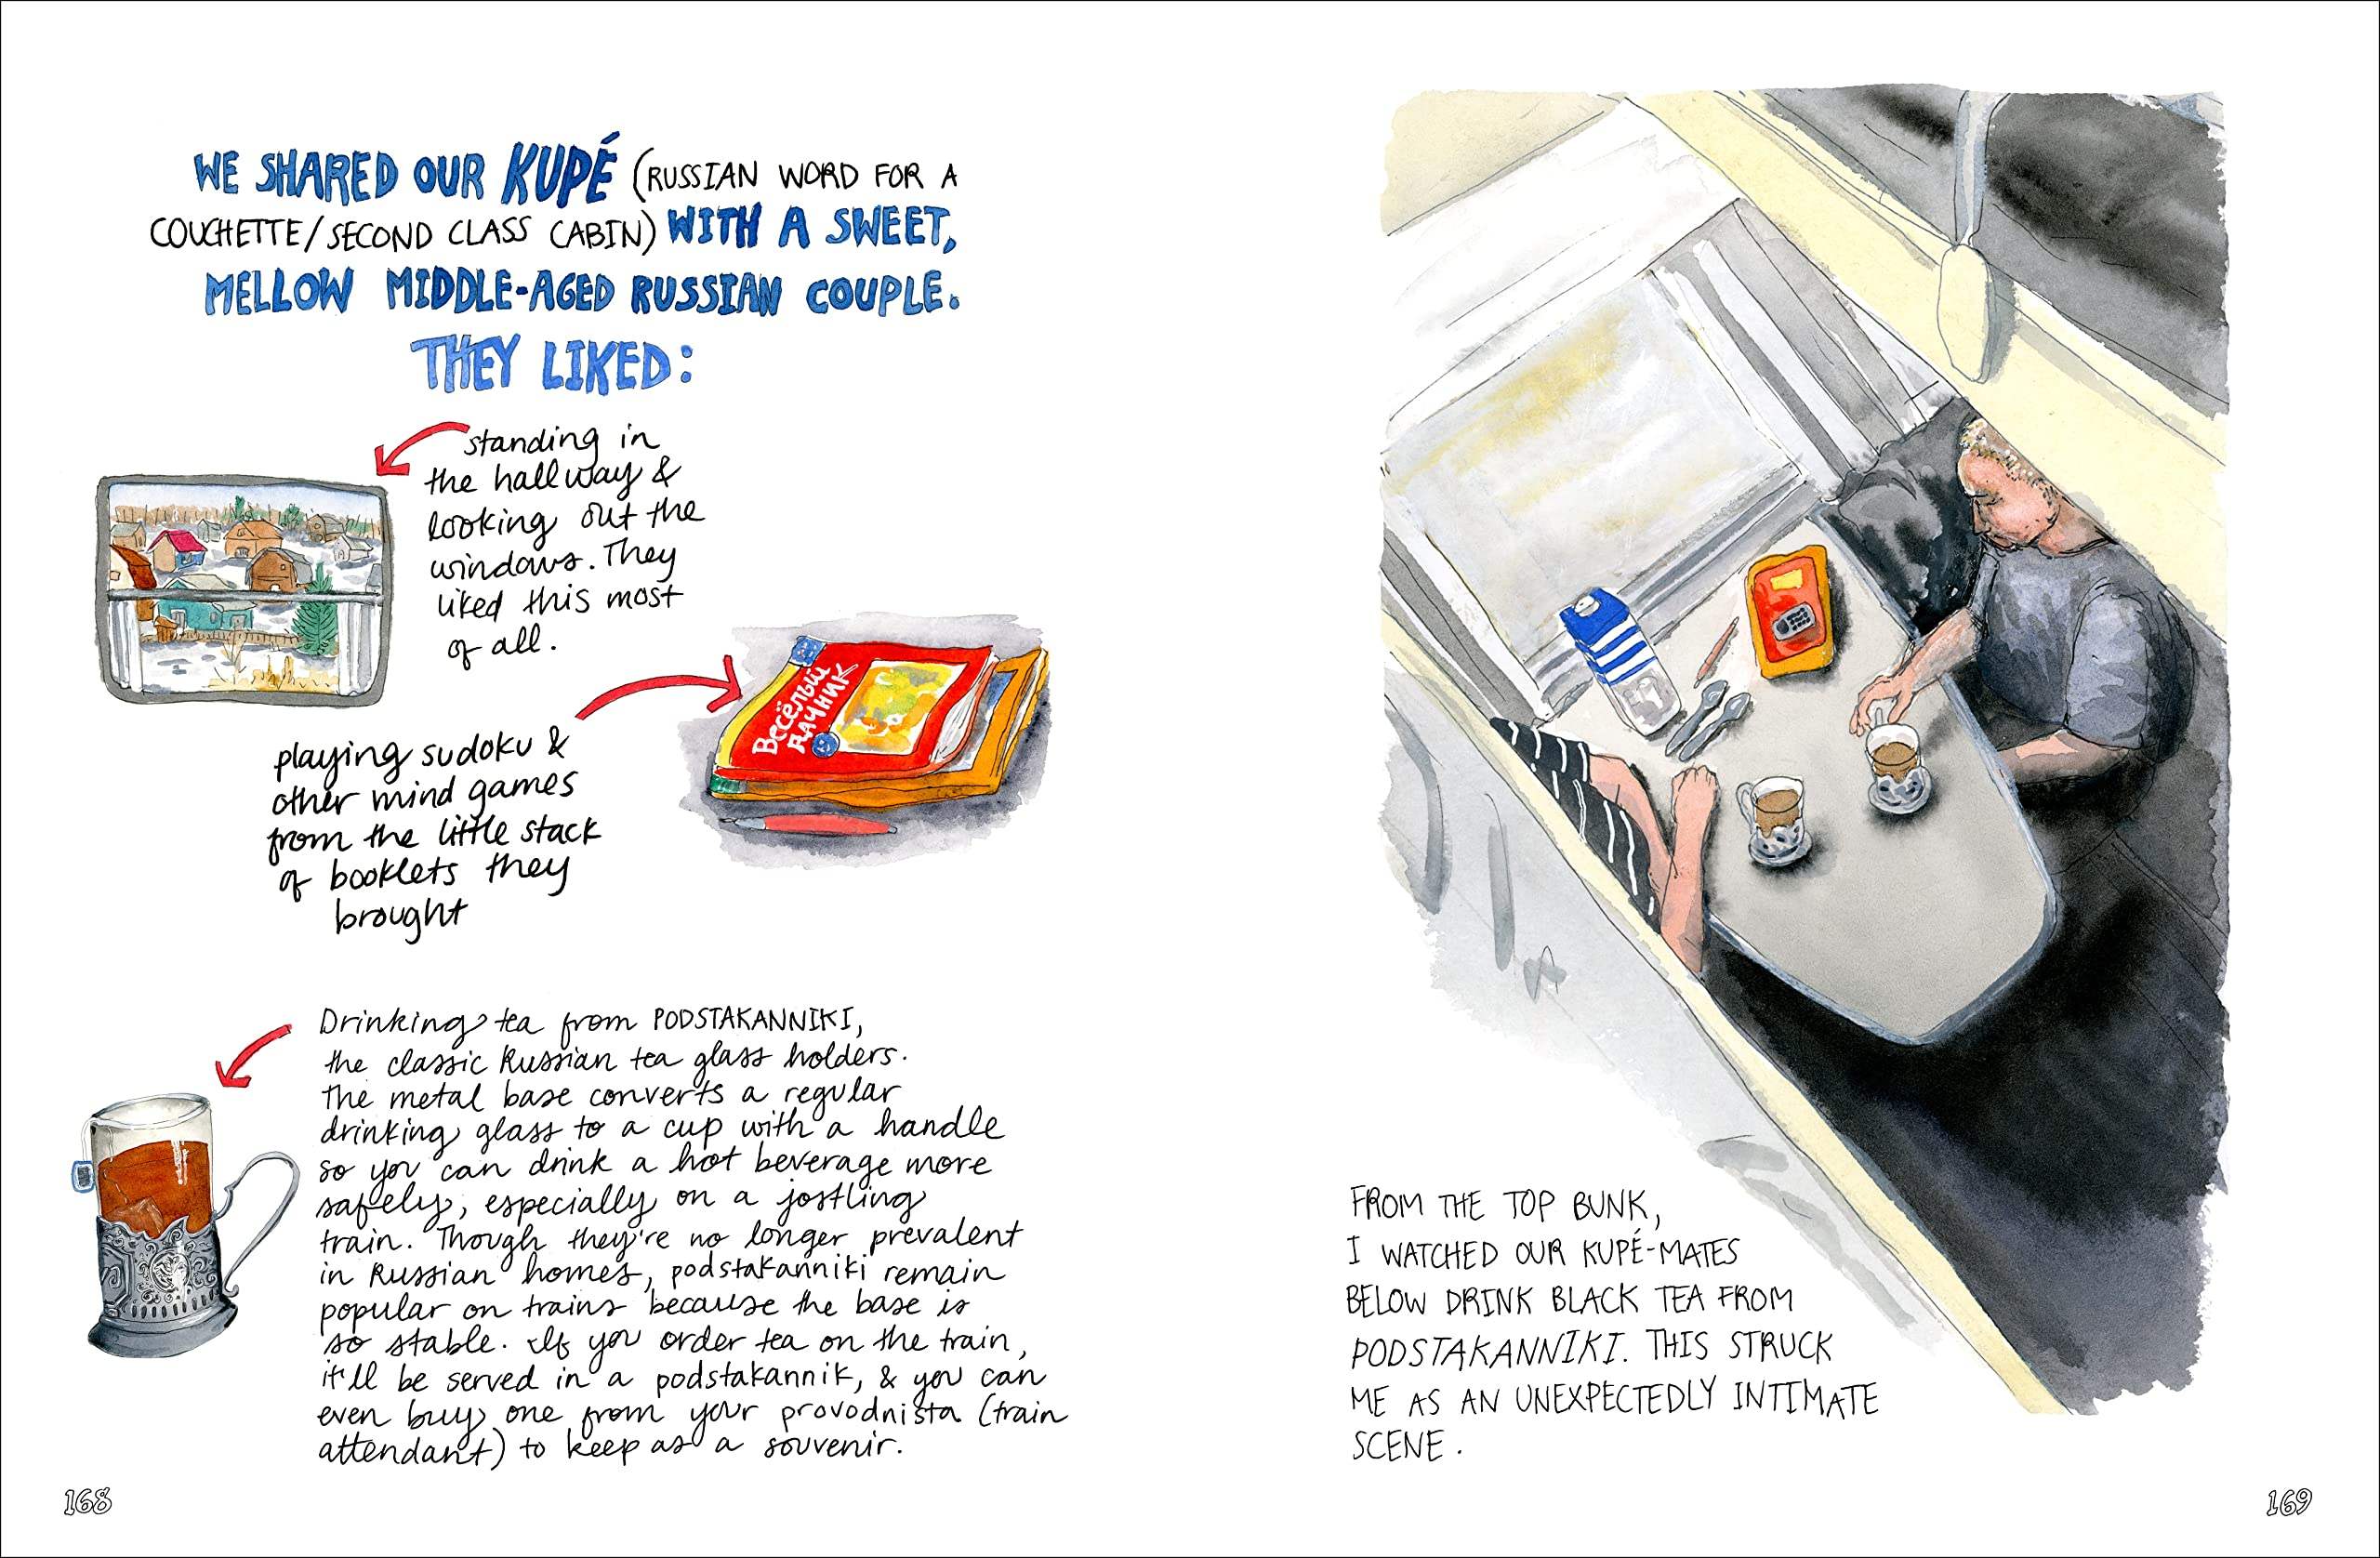 WE SHARED OUR KUPÉ (RUSSIAN WORD FOR A
COUCHETTE/SECOND CLASS CABIN) WITH A SWEET,
MELLOW MIDDLE-AGED RUSSIAN COUPLE.
THEY LIKED:
standing in
the hallway &
looking out the
windows. They
liked this most
of all.
Весёлый
дачник
playing sudoku &
other mind games
from the little stack
of booklets they
brought
Drinking tea from PODSTAKANNIKI,
the classic Russian tea glass holders.
The metal base converts a regular
drinking glass to a cup with a handle
so you can drink a hot beverage more
safely, especially on a jostling
train. Though they're no longer prevalent
in Russian homes, podstakanniki remain
popular on trains because the base is
so stable. If you order tea on the train,
it'll be served in a podstakannik, & you can
even buy one from your provodnista (train
attendant) to keep as a souvenir.
168
FROM THE TOP BUNK,
I WATCHED OUR KUPÉ-MATES
BELOW DRINK BLACK TEA FROM
PODSTAKANNIKI. THIS STRUCK
ME AS AN UNEXPECTEDLY INTIMATE
SCENE.
169